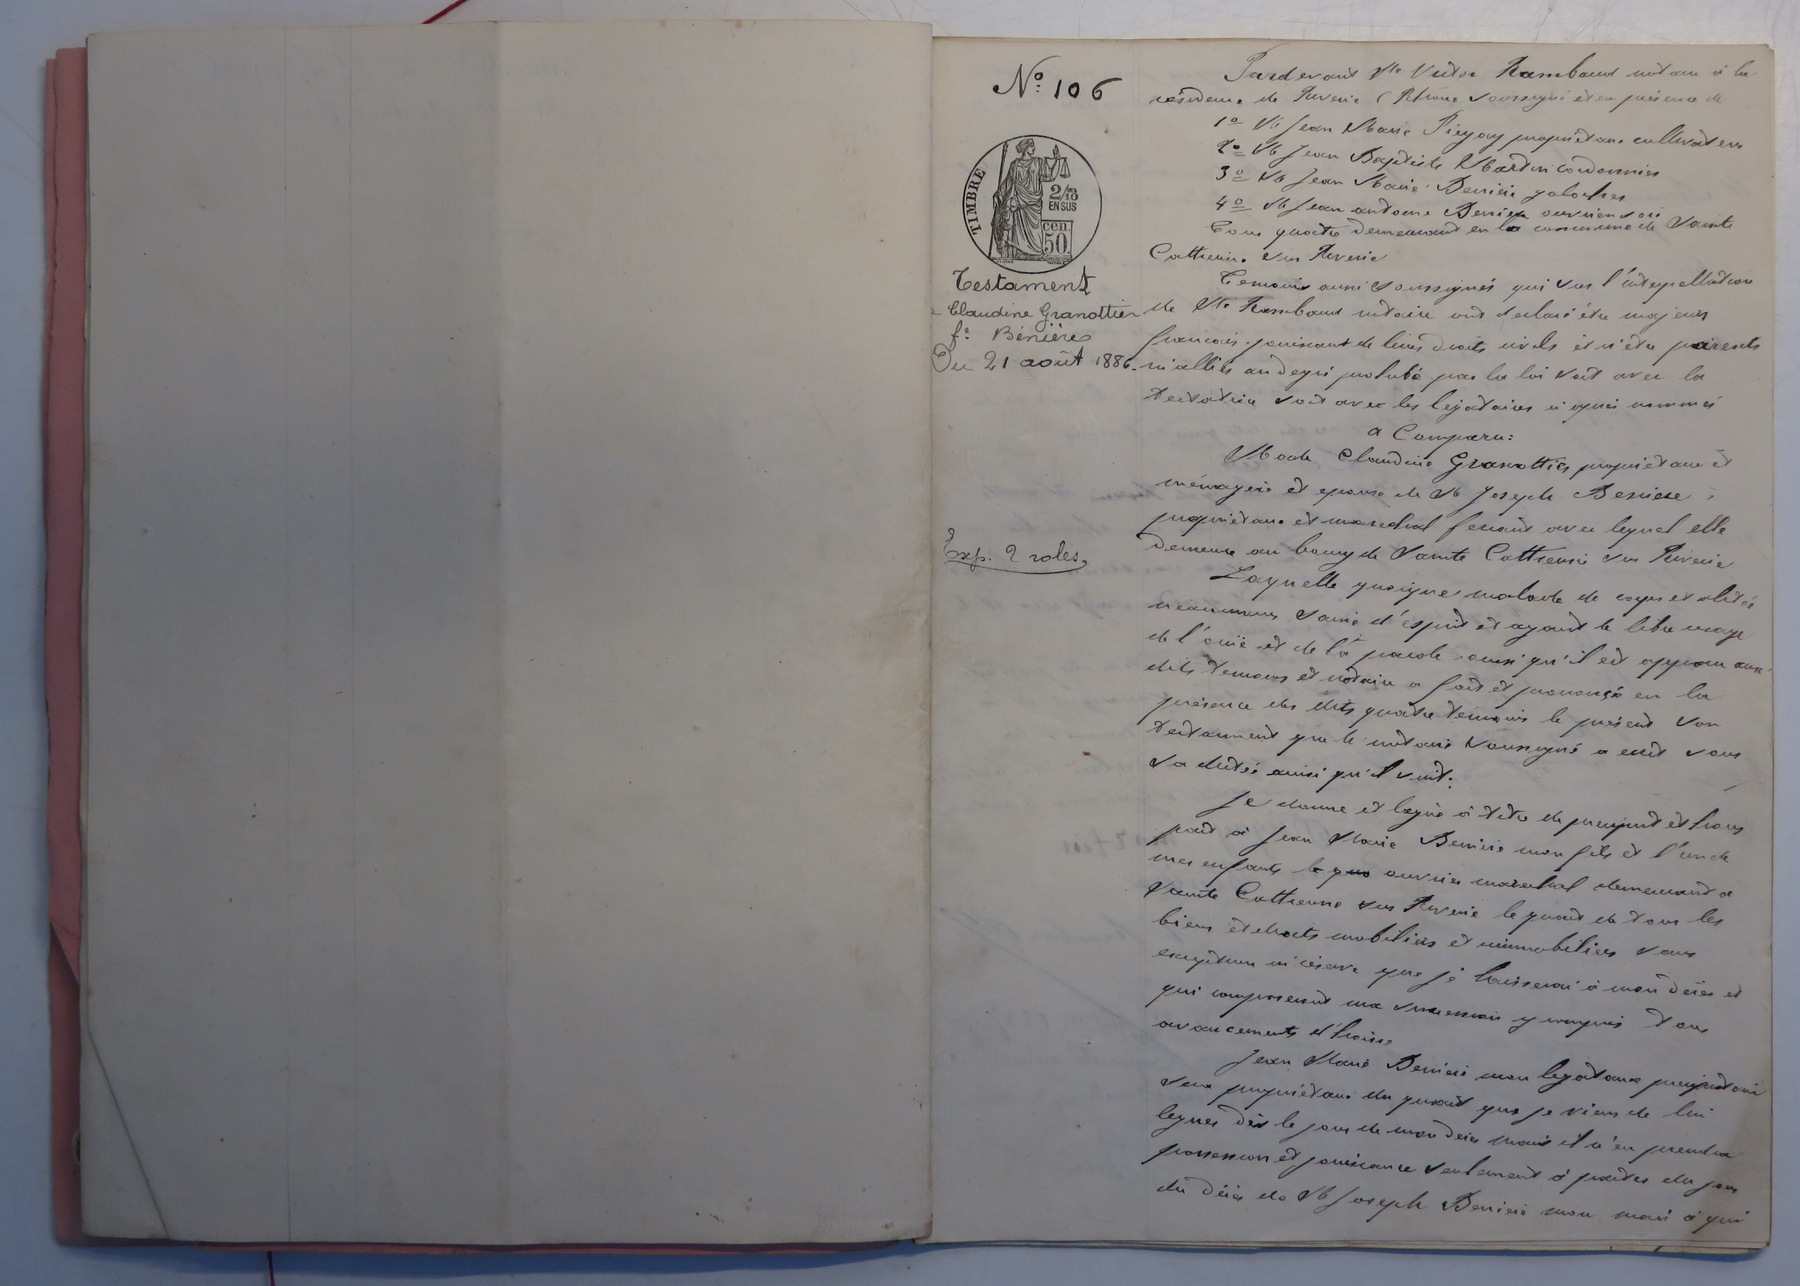 N° 106
TIMBRE
2/10
EN SUS
cen.
50.
Testament
Claudine Granottier
fe Bénière
Du 21 août 1886.
Exp. 2 roles
Pardevant Me Victor Rambaud notaire à la
résidence de Riverie (Rhône soussigné et en présence de
1° M Jean Marie Piegay propriétaire cultivateur
2° M Jean Baptiste Martin cordonnier
3° M Jean Marie Beniere galocher
4° M Jean antoine Beniere ouvrier
Tous quatre demeurant en la commune de Sainte
Catherine sur Riverie
Temoins aussi soussignés qui sur l'interpellation
de Me Rambaud notaire ont declaré être majeurs
francais jouissant de leurs droits civils et n'être parents
ni alliés au degré prohibé par la loi soit avec la
testatrice soit avec les légataires ci après nommés
a Comparu:
Made Claudine Granottier propriétaire et
ménagère et epouse de M Joseph Beniere,
propriétaire et marechal ferrant avec lequel elle
demeure au bourg de Sainte Catherine sur Riverie
Laquelle quoique malade de corps et alitée
néanmoins saine d'esprit et ayant le libre usage
de l'ouïe et de la parole ainsi qu'il est apparu aux
dits temoins et notaire a fait et prononcé en la
présence des dits quatre témoins le présent son
testament que le notaire soussigné a ecrit sous
sa dictée ainsi qu'il suit:
Je donne et lègue à titre de preciput et hors
part à Jean Marie Beniere mon fils et l'un de
mes enfants ouvrier marechal demeurant à
Sainte Catherine sur Riverie le quart de tous les
biens et droits mobiliers et immobiliers sans
exception ni réserve que je laisserai à mon décès et
qui composeront ma succession y compris tous
avancements d'hoirie
Jean Marie Beniere mon légataire preciputaire
sera propriétaire du quart que je viens de lui
leguer dès le jour de mon deces mais il n'en prendra
possession et jouissance seulement à partir du jour
du décès de M Joseph Beniere mon mari à qui